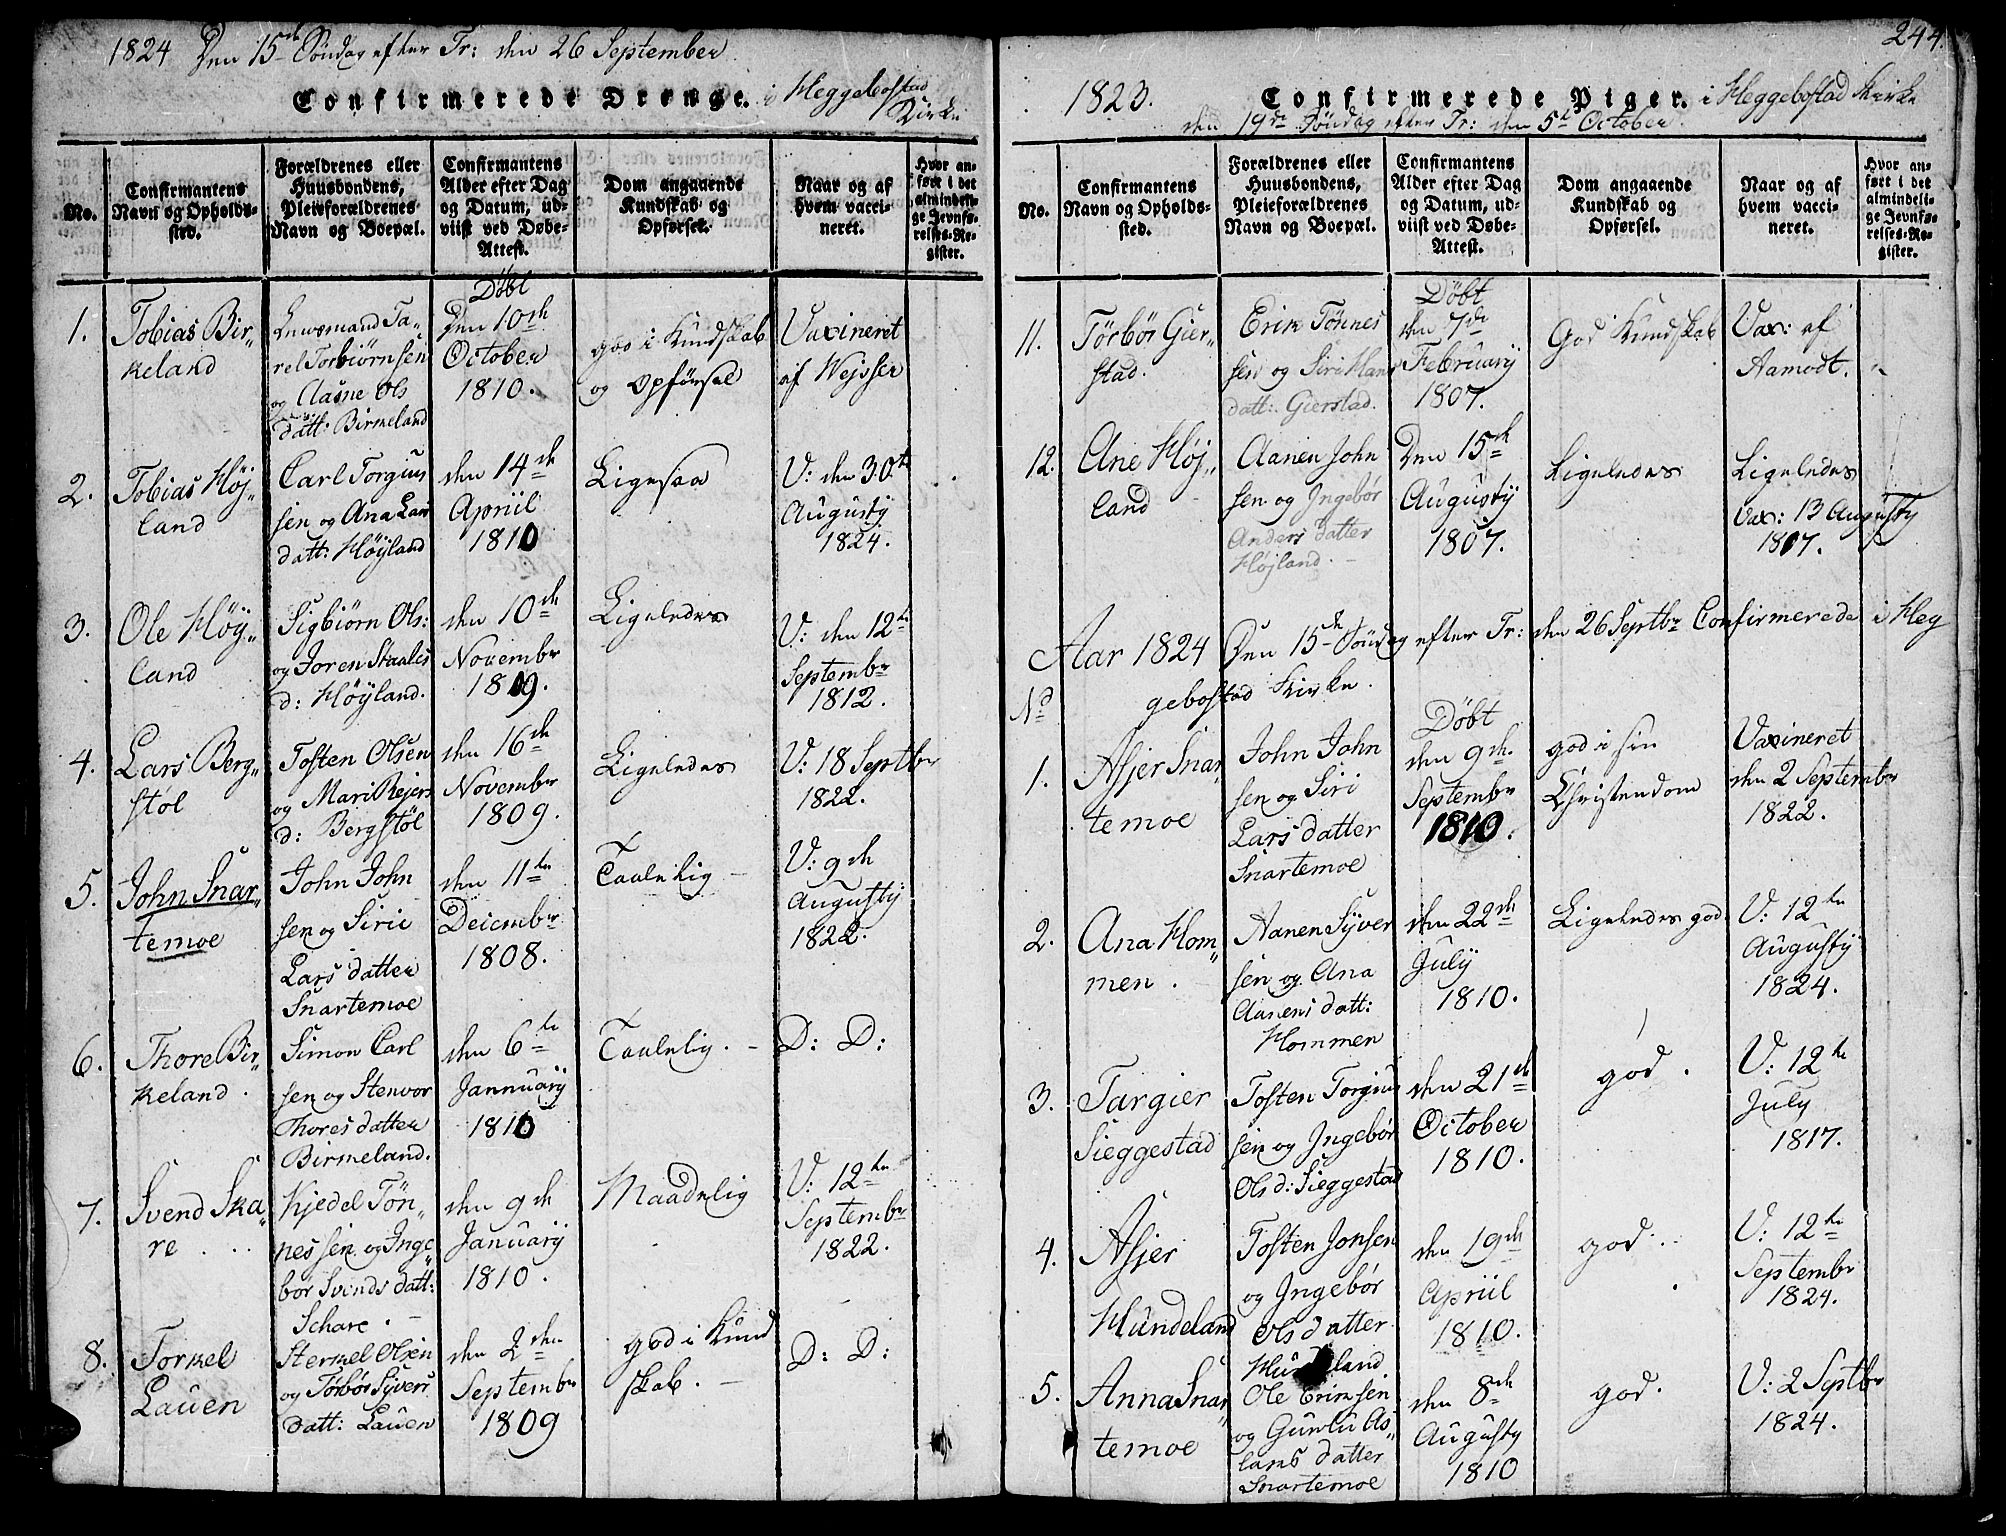 1824 Den 15de Søndag efter Tr: den 26 September
Confirmerede Drenge. i Heggebostad
Kirke
No.
Confirmantens
Navn og Opholds-
sted.
Forældrenes eller
Huusbondens,
Pleieforældrenes
Navn og Boepæl.
Confirmantens
Alder efter Dag
og Datum, ud-
viist ved Døbe-
Attest.
Dom angaaende
Kundskab og
Opførsel.
Naar og af
hvem vacci-
neret.
Hvor an-
ført i det
almindeli-
ge Jevnfø-
relses-Re-
gister.
1.
Tobias Bir„
keland
Lensmand Ta„
rel Torbiørnsen
og Aasne Ols
datt: Birkeland
Døbt
Den 10de
October
1810.
god i Kundskab
og Opførsel
Vaxineret
af Wejsser
2.
Tobias Høj„
land
Carl Torgius
sen og Ana Lars
datt: Høyland
den 14de
Apriil
1810
Ligesaa
V: den 30te
Augusty
1824.
3.
Ole Høy„
land
Sigbiørn Ols:
og Joren Staales
d: Høyland.
den 10de
Novembr
1809.
Ligeledes
V: den 12te
Septembr
1812.
4.
Lars Berg„
støl
Tosten Olsen
og Mari Rejers
d: Bergstøl
den 16de
Novembr
1809.
Ligeledes
V: 18 Septbr
1822.
5.
John Snar„
temoe
John John
sen og Sirie
Lars datter
Snartemoe
den 11te
Deicembr
1808.
Taalelig
V: 9de
Augusty
1822.
6.
Thore Bir„
keland.
Simon Carl
sen og Stenvor
Thores datter
Birkeland.
den 6te
Jannuarij
1810
Taalelig.
D: D:
7.
Svend Ska„
re
Kjedel Tøn„
nessen og Inge„
bør Svends datt:
Schare.
den 9de
Januarij
1810.
Maadelig
V: 12te
Septembr
1822.
8.
Torkel
Lauen
Sterkel Olsen
og Tørbør Syvers
datt: Lauen
den 2den
Septembr
1809
god i Kund
skab.
D: D:
244.
1823.
Confirmerede Piger. i Heggebostad Kirke
den 19de Søndag efter Tr: den 5te October.
No.
Confirmantens
Navn og Opholds-
sted.
Forældrenes eller
Huusbondens,
Pleieforældrenes
Navn og Boepæl.
Confirmantens
Alder efter Dag
og Datum, ud-
viist ved Døbe-
Attest.
Dom angaaende
Kundskab og
Opførsel.
Naar og af
hvem vacci-
neret.
Hvor an-
ført i det
almindeli-
ge Jevnfø-
relses-Re-
gister.
11.
Tørbør Gier„
stad.
Erik Tønnes
sen og Siri Hans
datt: Gierstad.
Døbt
den 7de
Februarij
1807.
God Kundskab
Vax: af
Aamodt.
12.
Ane Høj„
land
Aanen John
sen og Ingebør
Anders datter
Højland.
Den 15de
Augustij
1807.
Ligeledes
Ligeledes
Vax: 13 Augusty
1807.
Aar 1824 Den 15de Søndag efter Tr: den 26 Septbr Confirmerede i Heg
gebostad Kirke.
No
1.
Asjer Snar„
temoe
John John
sen og Siri
Lars datter
Snartemoe
Døbt
den 9de
Septembr
1810.
god i sin
Christendom
Vaxineret
den 2 Septembr
1822.
2.
Ana Hom„
men.
Aanen Syver
sen og Ana
Aanens datt:
Hommen
den 22de
Julij
1810.
Ligeledes god.
V: 12te
Augustij
1824.
3.
Targier
Sieggestad
Tosten Torgius
sen og Ingebør
Ols d: Sieggestad
den 21de
October
1810.
god.
V: 12te
July
1817.
4.
Asjer
Hundeland
Tosten Jonsen
og Ingebør
Ols datter
Hundeland
den 19de
Apriil
1810.
god.
V: 12te
Septembr
1824.
5.
Anna Snar„
temoe
Ole Eriksen
og Gunlu As„
lans datter
Snartemoe
den 8de
Augusty
1810
god.
V: 2 Septbr
1824.